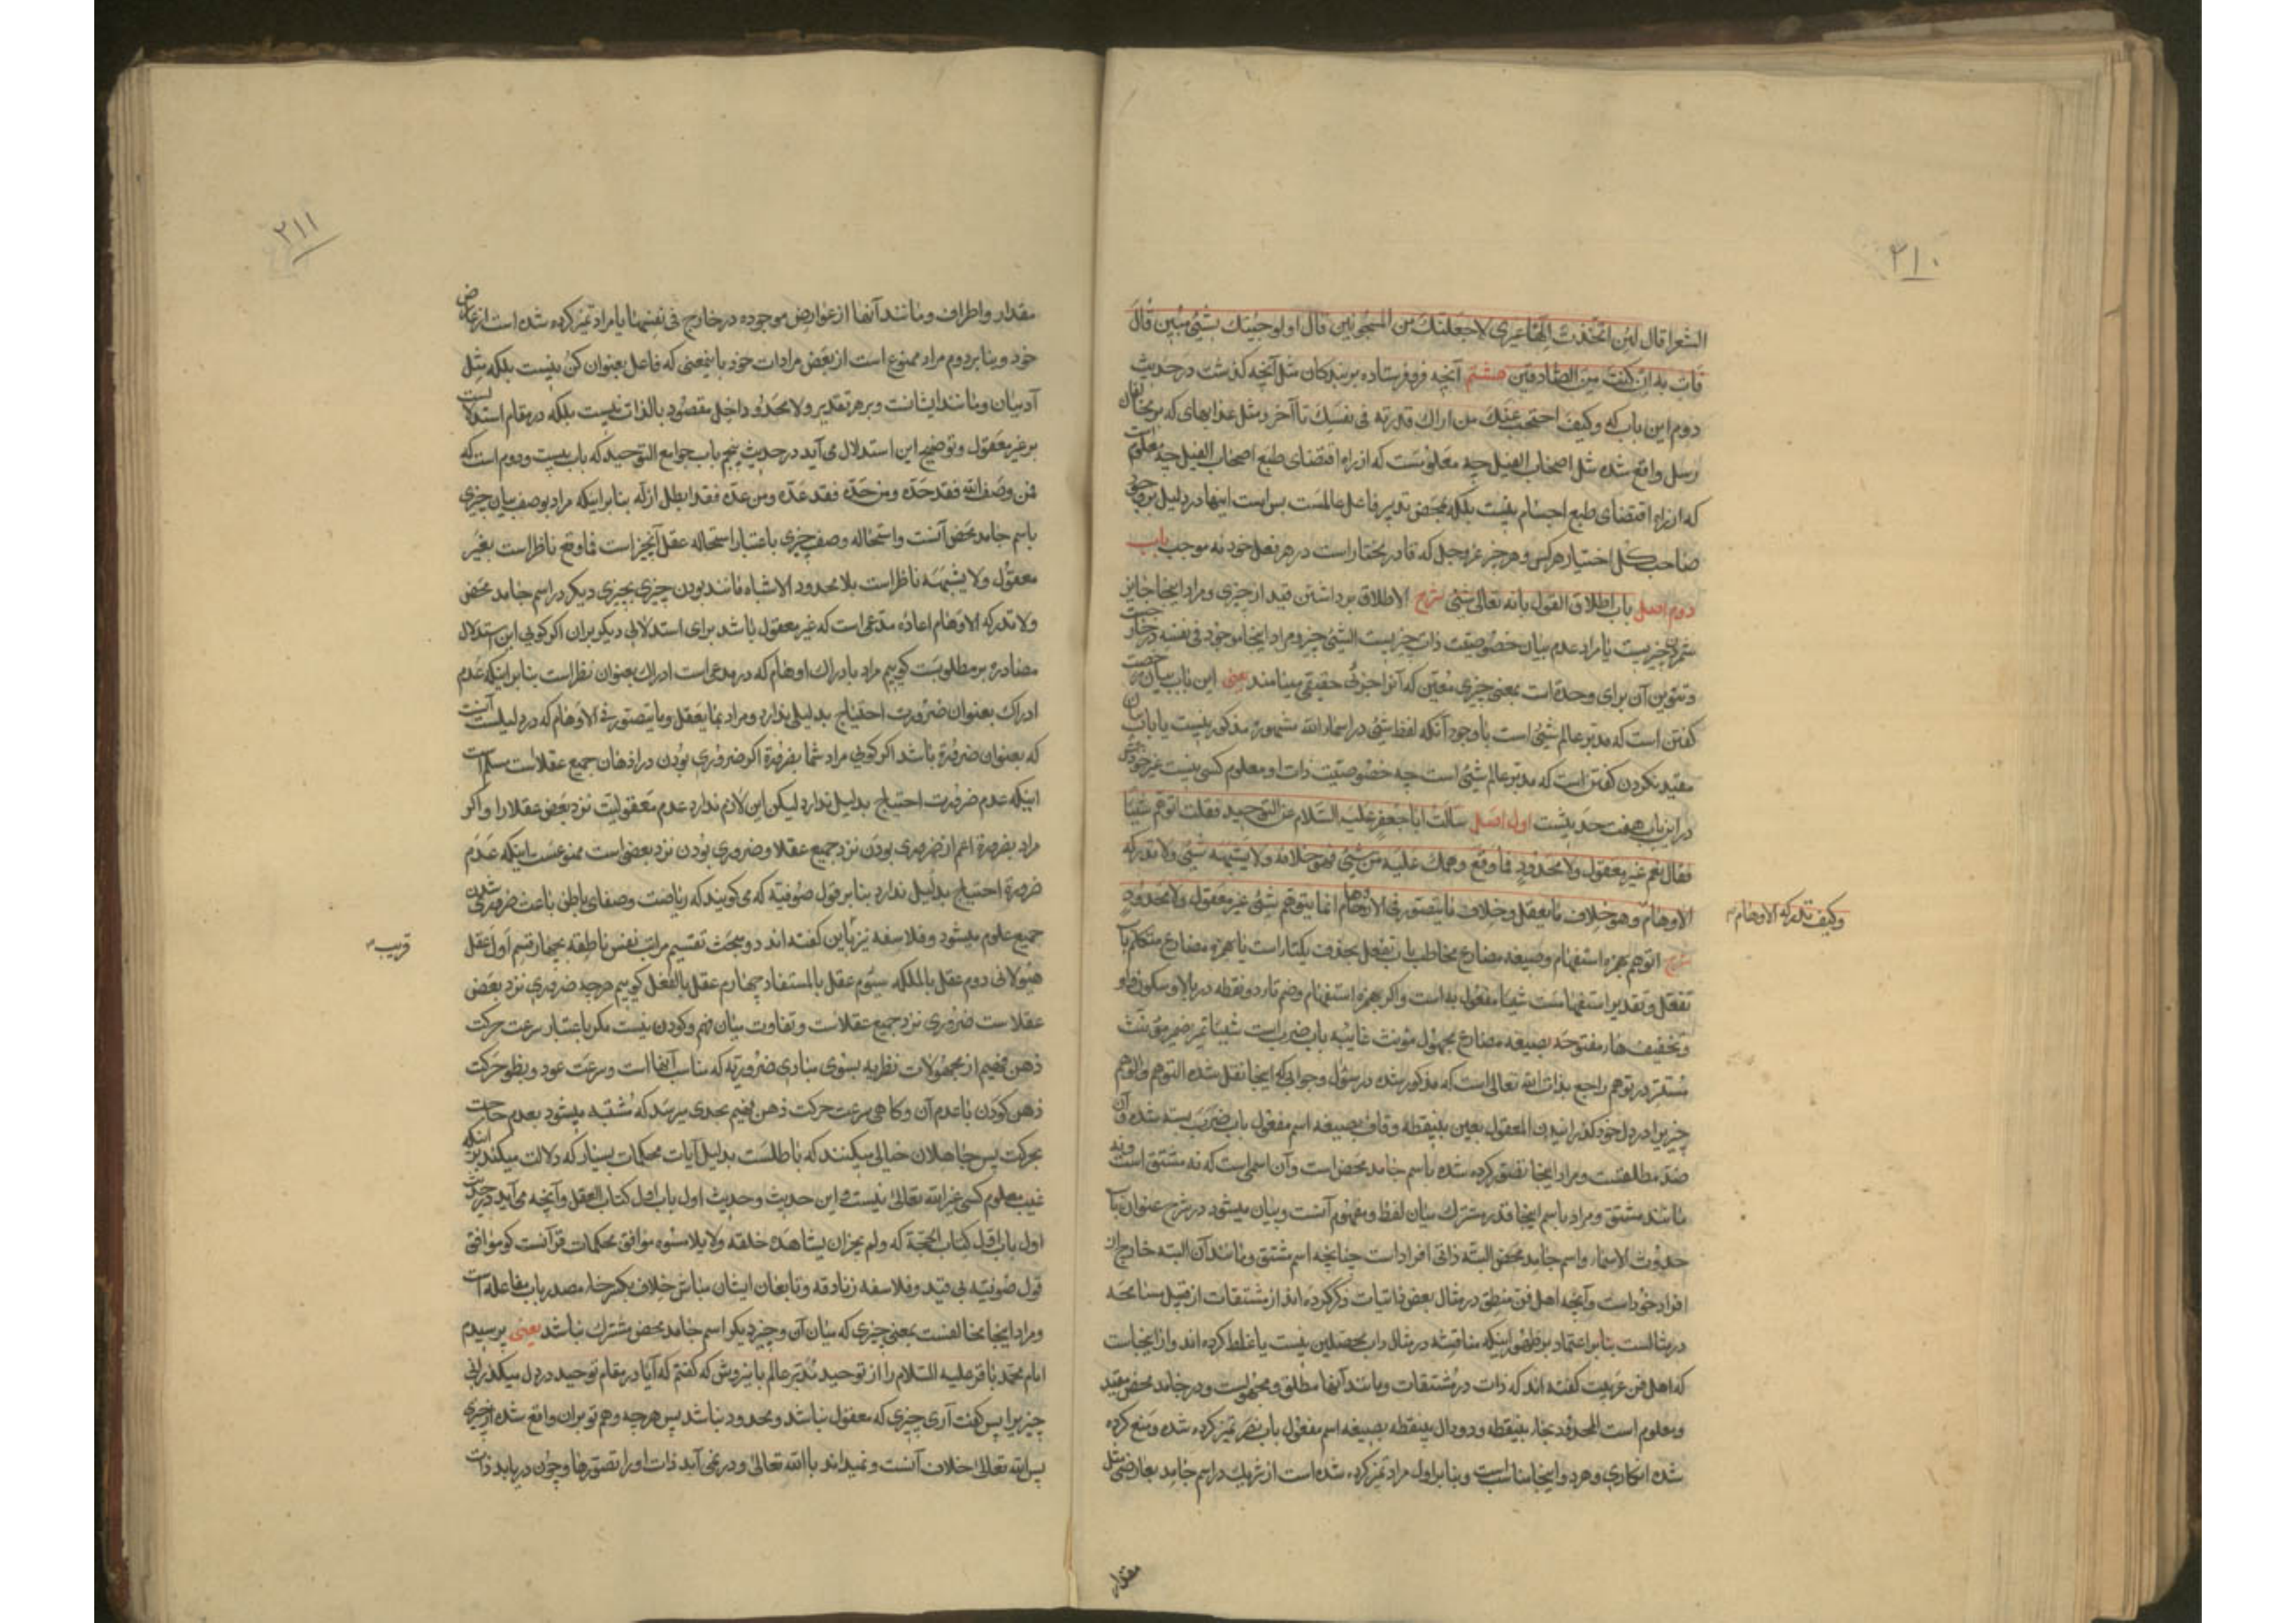 ٢١٠
الشعرا قال لئن اتّخذت الٰهًا غیری لاجعلنّک من المسجونین قال اولوجئتک بشیء مبین قال
فأت به ان کنت من الصّادقین هشتم آنچه فرو فرستاده بر بندکان مثل آنچه کذشت در حدیث
دوم این باب که وکیف احتجب عنک من اراک قدرته فی نفسک تا آخر و مثل عذابهای که بر مخالفان
رسل واقع شده مثل اصحاب الفیل چه معلومست که از راه اقتضای طبع اصحاب الفیل چه معلوم است
که از راه اقتضای طبع اجسام نیست بلکه بمحض تدبیر فاعل عالمست بس است اینها در دلیل بر وجود
صاحب کل اختیار هر کس و هر چیز عزوجل که قادر مختار است در هر فعل خود نه موجب باب
دوم اصل باب اطلاق القول بانه تعالی شیء شرح الاطلاق برداشتن قید از چیزی و مراد اینجا جایز
شمردن چیزیست یا مراد عدم بیان خصوصیت ذات چیزیست الشیء چیز و مراد اینجا موجود فی نفسه در خارج است
و تنوین آن برای وحدتست بمعنی چیزی معیّن که آنرا جزئی حقیقی مینامند یعنی این باب بیان رخصت
کفتن است که مدبر عالم شیء است با وجود آنکه لفظ شیء در اسماء الله مشهوره مذکور نیست یا باب بیان
مقید نکردن کفتن است که مدبر عالم شیء است چه خصوصیت ذات او معلوم کسی نیست غیر خودش
در این باب هفت حدیثست اول اصل سألت اباجعفر علیه السّلام عن التوحید فقلت اتوهّم شیئا
فقال نعم غیر معقول ولا محدود فما وقع وهمک علیه من شیء فهو خلافه ولا یشبهه شیء ولا تدرکه
الاوهام وهو خلاف ما یعقل وخلاف ما یتصور فی الاوهام انما یتوهّم شیء غیر معقول ولا محدود
وکیف تدرکه الاوهام
شرح اتوهم بهمزه استفهام و صیغه مضارع مخاطب باب تفعل بحذف یکتا است یا همزه مضارع متکلم باب
تفعّل و تقدیر استفهامست شیئا مفعول به است و اکر بهمزه استفهام و ضم تاء دو نقطه در بالا و سکون واو
و تخفیف هاء مفتوحه بصیغه مضارع مجهول مؤنث غایبه باب ضرب است شیئا تمیز ضمیر مؤنث
مستتر در توهم راجع بذات الله تعالی است که مذکور شده در سؤال و جوابی که اینجا نقل شده التوهم والوهم
چیزیرا در دل خود کذرانیدن المعقول بعین بینقطه و قاف بصیغه اسم مفعول باب ضرب بسته شده و آن
ضدّ مطلقست و مراد اینجا تصوّر کرده شده باسم جامد محض است و آن اسمی است که نه مشتق است و نه
مانند مشتق و مراد باسم اینجا قدر مشترک میان لفظ و مفهوم آنست و بیان میشود در شرح عنوان باب
حدوث الاسماء و اسم جامد محض البته ذاتی افراد است چنانچه اسم مشتق و مانند آن البته خارج از
افراد خود است و آنچه اهل فن منطق در مثال بعض ذاتیات ذکر کرده اند از مشتقات از قبیل مسامحه
در مثالست بنابر اعتماد بر ظهور اینکه مناقشه در مثال داب محصلین نیست یا غلط کرده اند و از اینجاست
که اهل فن عربیت کفته اند که ذات در مشتقات و مانند آنها مطلق و مجهولست و در جامد محض مقید
و معلوم است المحدود بحاء بینقطه و دو دال بینقطه بصیغه اسم مفعول باب نصر تمیز کرده شده و منع کرده
شده از کاری و هر دو اینجا مناسب است و بنابر اول مراد تمیز کرده شده است از شریک در اسم جامد بعارضی مثل
مقدار
٢١١
مقدار و اطراف و مانند آنها از عوارض موجوده در خارج فی نفسها یا مراد تمیز کرده شده است از عارض
خود و بنابر دوم مراد ممنوع است از بعض مرادات خود باینمعنی که فاعل بعنوان کن نیست بلکه مثل
آدمیان و مانند ایشانست و بر هر تقدیر ولا محدود داخل مقصود بالذات نیست بلکه در مقام استدلالست
بر غیر معقول و توضیح این استدلال می آید در حدیث پنجم باب جوامع التوحید که باب بیست و دوم است که
فمن وصف الله فقد حدّه ومن حدّه فقد عدّه ومن عدّه فقد ابطل ازله بنابر اینکه مراد بوصف بیان چیزی
باسم جامد محض آنست و استحاله وصف چیزی باعتبار استحاله عقل آنچیز است فما وقع ناظر است بغیر
معقول ولا یشبهه ناظر است بلا محدود الاشباه مانند بودن چیزی بچیزی دیکر در اسم جامد محض
ولا تدرکه الاوهام اعاده مدّعی است که غیر معقول باشد برای استدلالی دیکر بران اکر کوئی این استدلال
مصادره بر مطلوبست کوییم مراد بادراک اوهام که در مدعی است ادراک بعنوان نظر است بنابر اینکه عدم
ادراک بعنوان ضرورت احتیاج بدلیلی ندارد و مراد بما یعقل و ما یتصور فی الاوهام که در دلیلست آنست
که بعنوان ضرورة باشد اکر کوئی مراد شما بضرورة اکر ضروری بودن در اذهان جمیع عقلاست مسلم است
اینکه عدم ضرورت احتیاج بدلیل ندارد لیکن این لازم ندارد عدم معقولیت نزد بعض عقلا را و اکر
مراد بضرورة اعم از ضروری بودن نزد جمیع عقلا و ضروری بودن نزد بعضی است ممنوعست اینکه عدم
ضرورة احتیاج بدلیل ندارد بنابر قول صوفیه که می کویند که ریاضت و صفای باطن باعث ضروری شدن
جمیع علوم میشود و فلاسفه نیز باین کفته اند در مبحث تقسیم مراتب نفس ناطقه بچهار قسم اول عقل
قریب
هیولانی دوم عقل بالملکه سیّوم عقل بالمستفاد چهارم عقل بالفعل کوییم هر چه ضروری نزد بعض
عقلاست ضروری نزد جمیع عقلاست و تفاوت میان فهم و کودن نیست مکر باعتبار سرعت حرکت
ذهن فهیم از مجهولات نظریه بسوی مبادی ضروریّه که مناسب آنها است و سرعت عود و بطؤ حرکت
ذهن کودن با عدم آن و کاهی سرعت حرکت ذهن فهیم بحدی میرسد که مشتبه میشود بعدم حاجت
بحرکت پس جاهلان خیالی میکنند که باطلست بدلیل آیات محکمات بسیار که دلالت میکند بر اینکه
غیب معلوم کسی غیر الله تعالی نیست و این حدیث و حدیث اول باب اول کتاب العقل و آنچه می آید در حدیث
اول باب اول کتاب الحجة که ولم یجز ان یشاهده خلقه ولا یلامسوه موافق محکمات قرآنست کو موافق
قول صوفیّه بی قید و فلاسفه زنادقه و تابعان ایشان مباش خلاف بکسر خا مصدر باب مفاعله است
و مراد اینجا مخالفست بمعنی چیزی که میان آن و چیز دیکر اسم جامد محض مشترک نباشد یعنی پرسیدم
امام محمّد باقر علیه السّلام را از توحید مدبّر عالم باینروش که کفتم که آیا در مقام توحید در دل میکذرانی
چیزیرا پس کفت آری چیزی که معقول نباشد و محدود نباشد پس هر چه وهم تو بران واقع شده از چیزی
پس الله تعالی خلاف آنست و نمیماند با الله تعالی و در نمی آید ذات او را تصوّرها و چون دریابد ذات